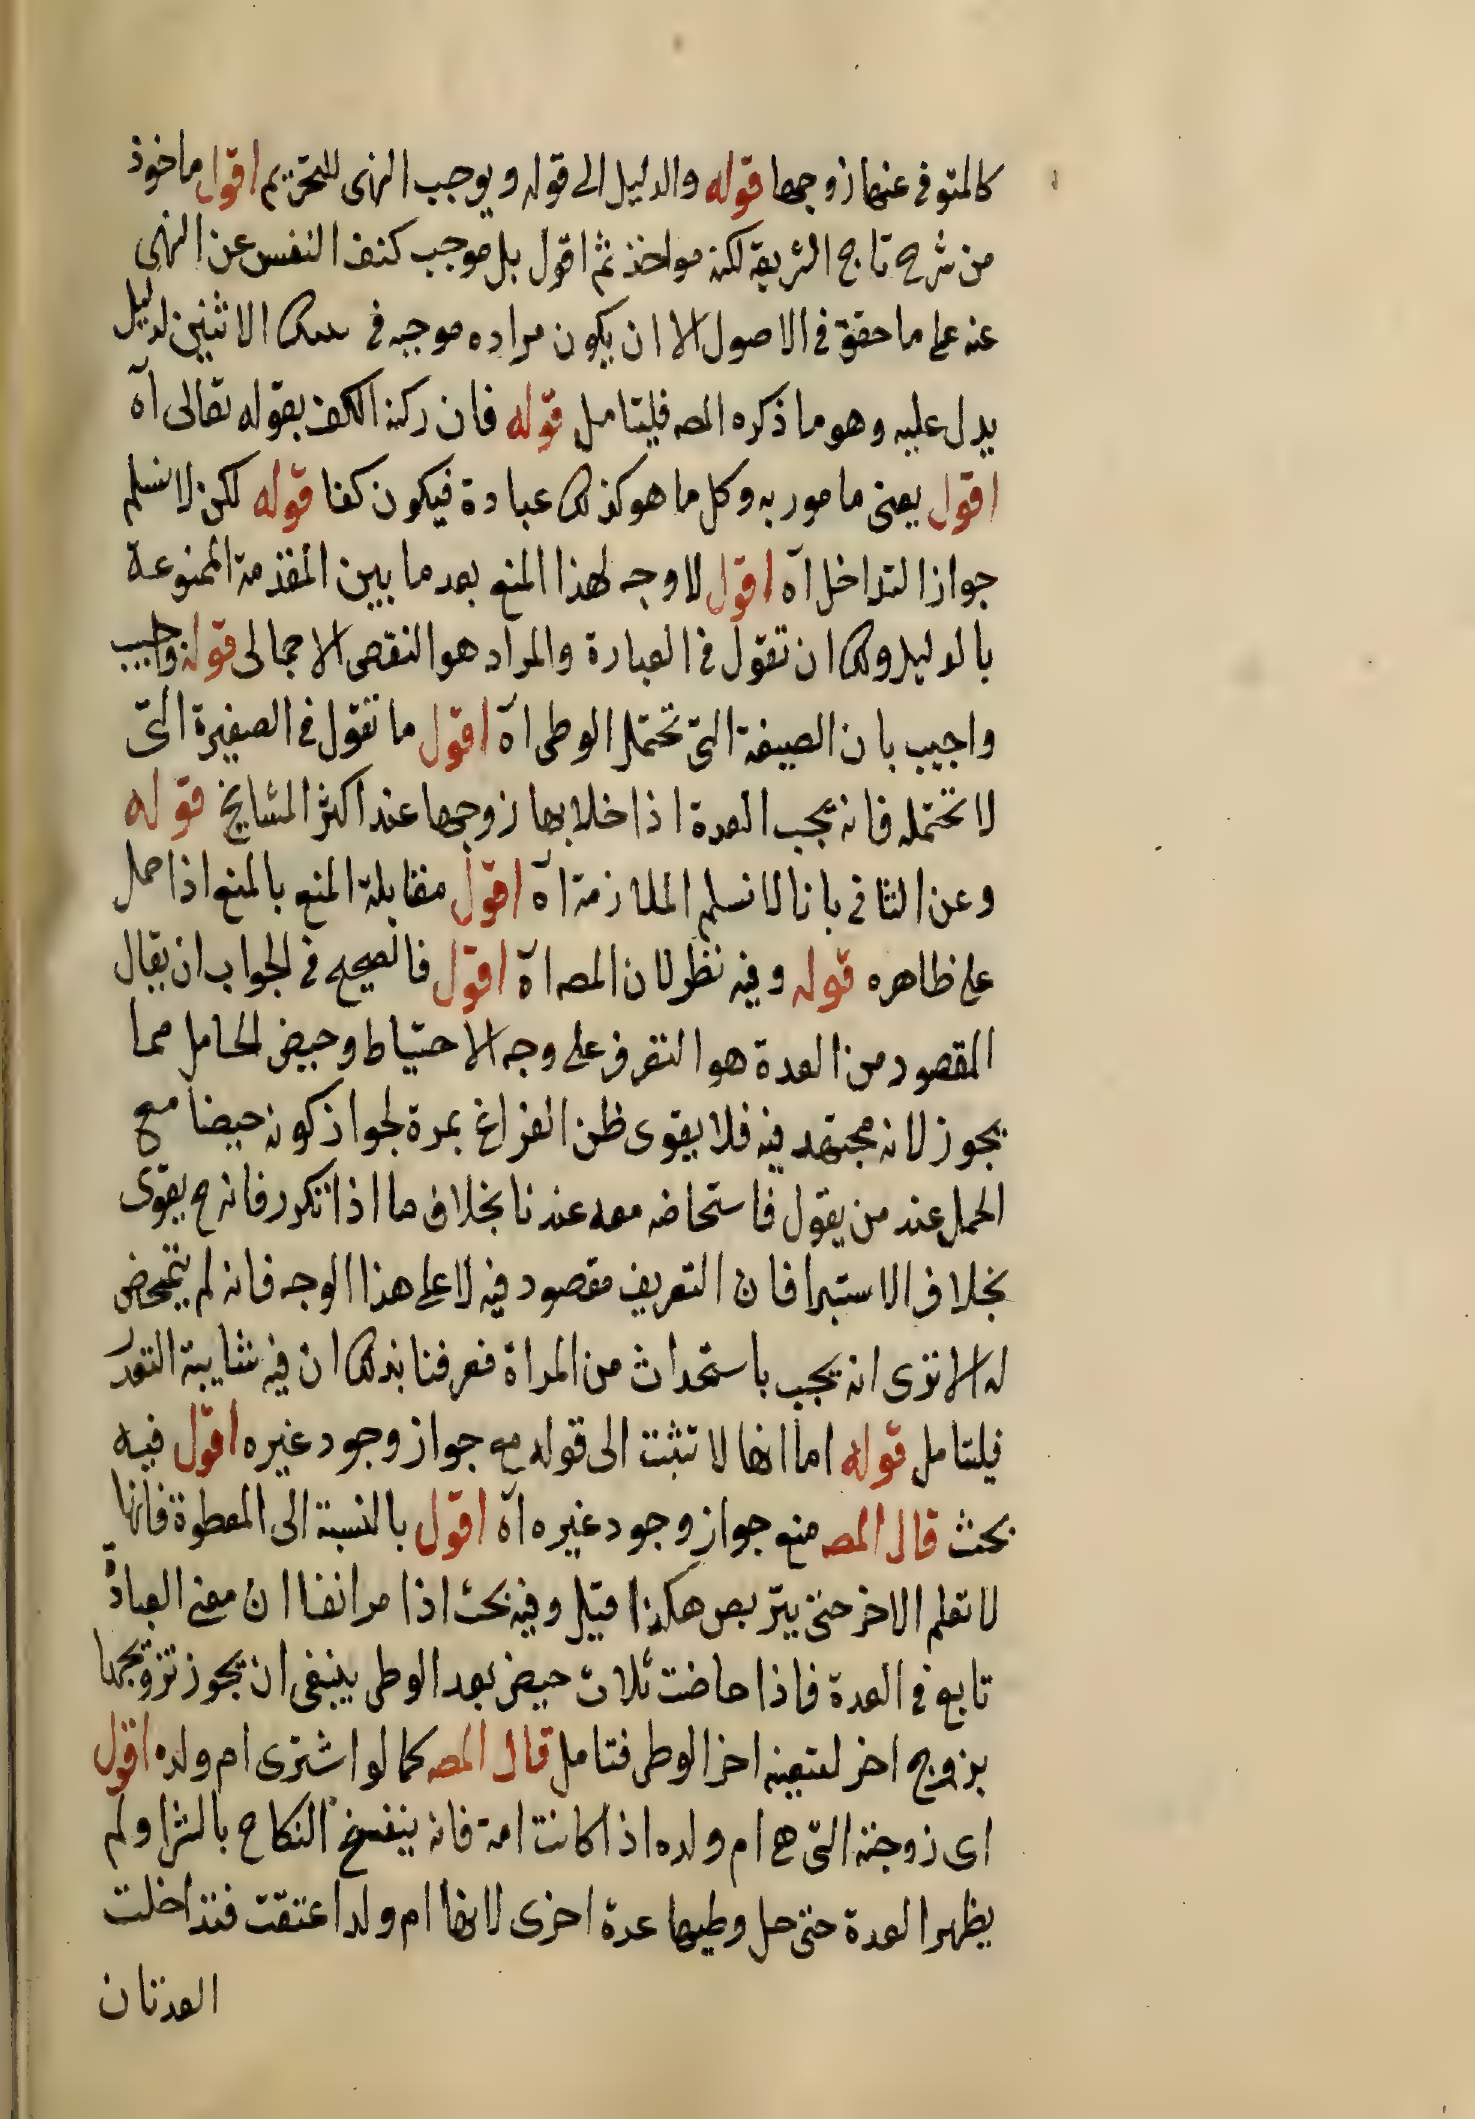 كالمتوفى عنها زوجها قوله والدليل الى قوله ويوجب النهى للتحريم اقول ماخوذ
من شرح تاج الشريعة لكنه مواخذ ثم اقول بل موجب كف النفس عن النهى
عنه على ما حقق فى الاصول الا ان يكون مراده موجبه فى الاثنين لدليل
يدل عليه وهو ما ذكره المصـ فليتامل قوله فان ركنه الكف بقوله تعالى آه
اقول يعنى مامور به وكل ما هو كذلك عبادة فيكون كفا قوله لكن لا نسلم
جواز التداخل آه اقول لا وجه لهذا المنع بعد ما بين المقدمة الممنوعة
بالدليل ولك ان تقول فى العبارة والمراد هو النقض الاجمالى قوله واجيب
واجيب بان الصيغة التى تحتمل الوطى آه اقول ما تقول فى الصغيرة التى
لا تحتمله فانه يجب العدة اذا خلا بها زوجها عند اكثر المشايخ قوله
وعن الثانى بانا لا نسلم الملازمة آه اقول مقابلة المنع بالمنع اذا حمل
على ظاهره قوله وفيه نظر لان المصـ آه اقول فالصحيح فى الجواب ان يقال
المقصود من العدة هو التعرف على وجه الاحتياط وحيض الحامل مما
يجوز لانه مجتهد فيه فلا يقوى ظن الفراغ بمرة لجواز كونه حيضا مع
الحمل عند من يقول فاستحاضه معه عندنا بخلاف ما اذا تكرر فانه ح يقوى
بخلاف الاستبرا فان التعريف مقصود فيه لا على هذا الوجه فانه لم يتمحض
له الا ترى انه يجب باستحداث من المراة فعرفنا بذلك ان فيه شايبة التعبد
فليتامل قوله اما انها لا تثبت الى قوله مع جواز وجود غيره اقول فيه
بحث قال المصـ منع جواز وجود غيره آه اقول بالنسبة الى المعطوة فانها
لا تعلم الاخر حتى يتربص هكذا قيل وفيه بحث اذا مر انفا ان معنى العبادة
تابع فى العدة فاذا حاضت ثلاث حيض بعد الوطى ينبغى ان يجوز تزوجها
بزوج اخر لتعينه اخر الوطى فتامل قال المصـ كما لو اشترى ام ولده اقول
اى زوجته التى هى ام ولده اذا كانت امة فانه ينفسخ النكاح بالشرا ولم
يظهر العدة حتى حل وطيها عدة اخرى لانها ام ولد اعتقت فتداخلت
العدتان